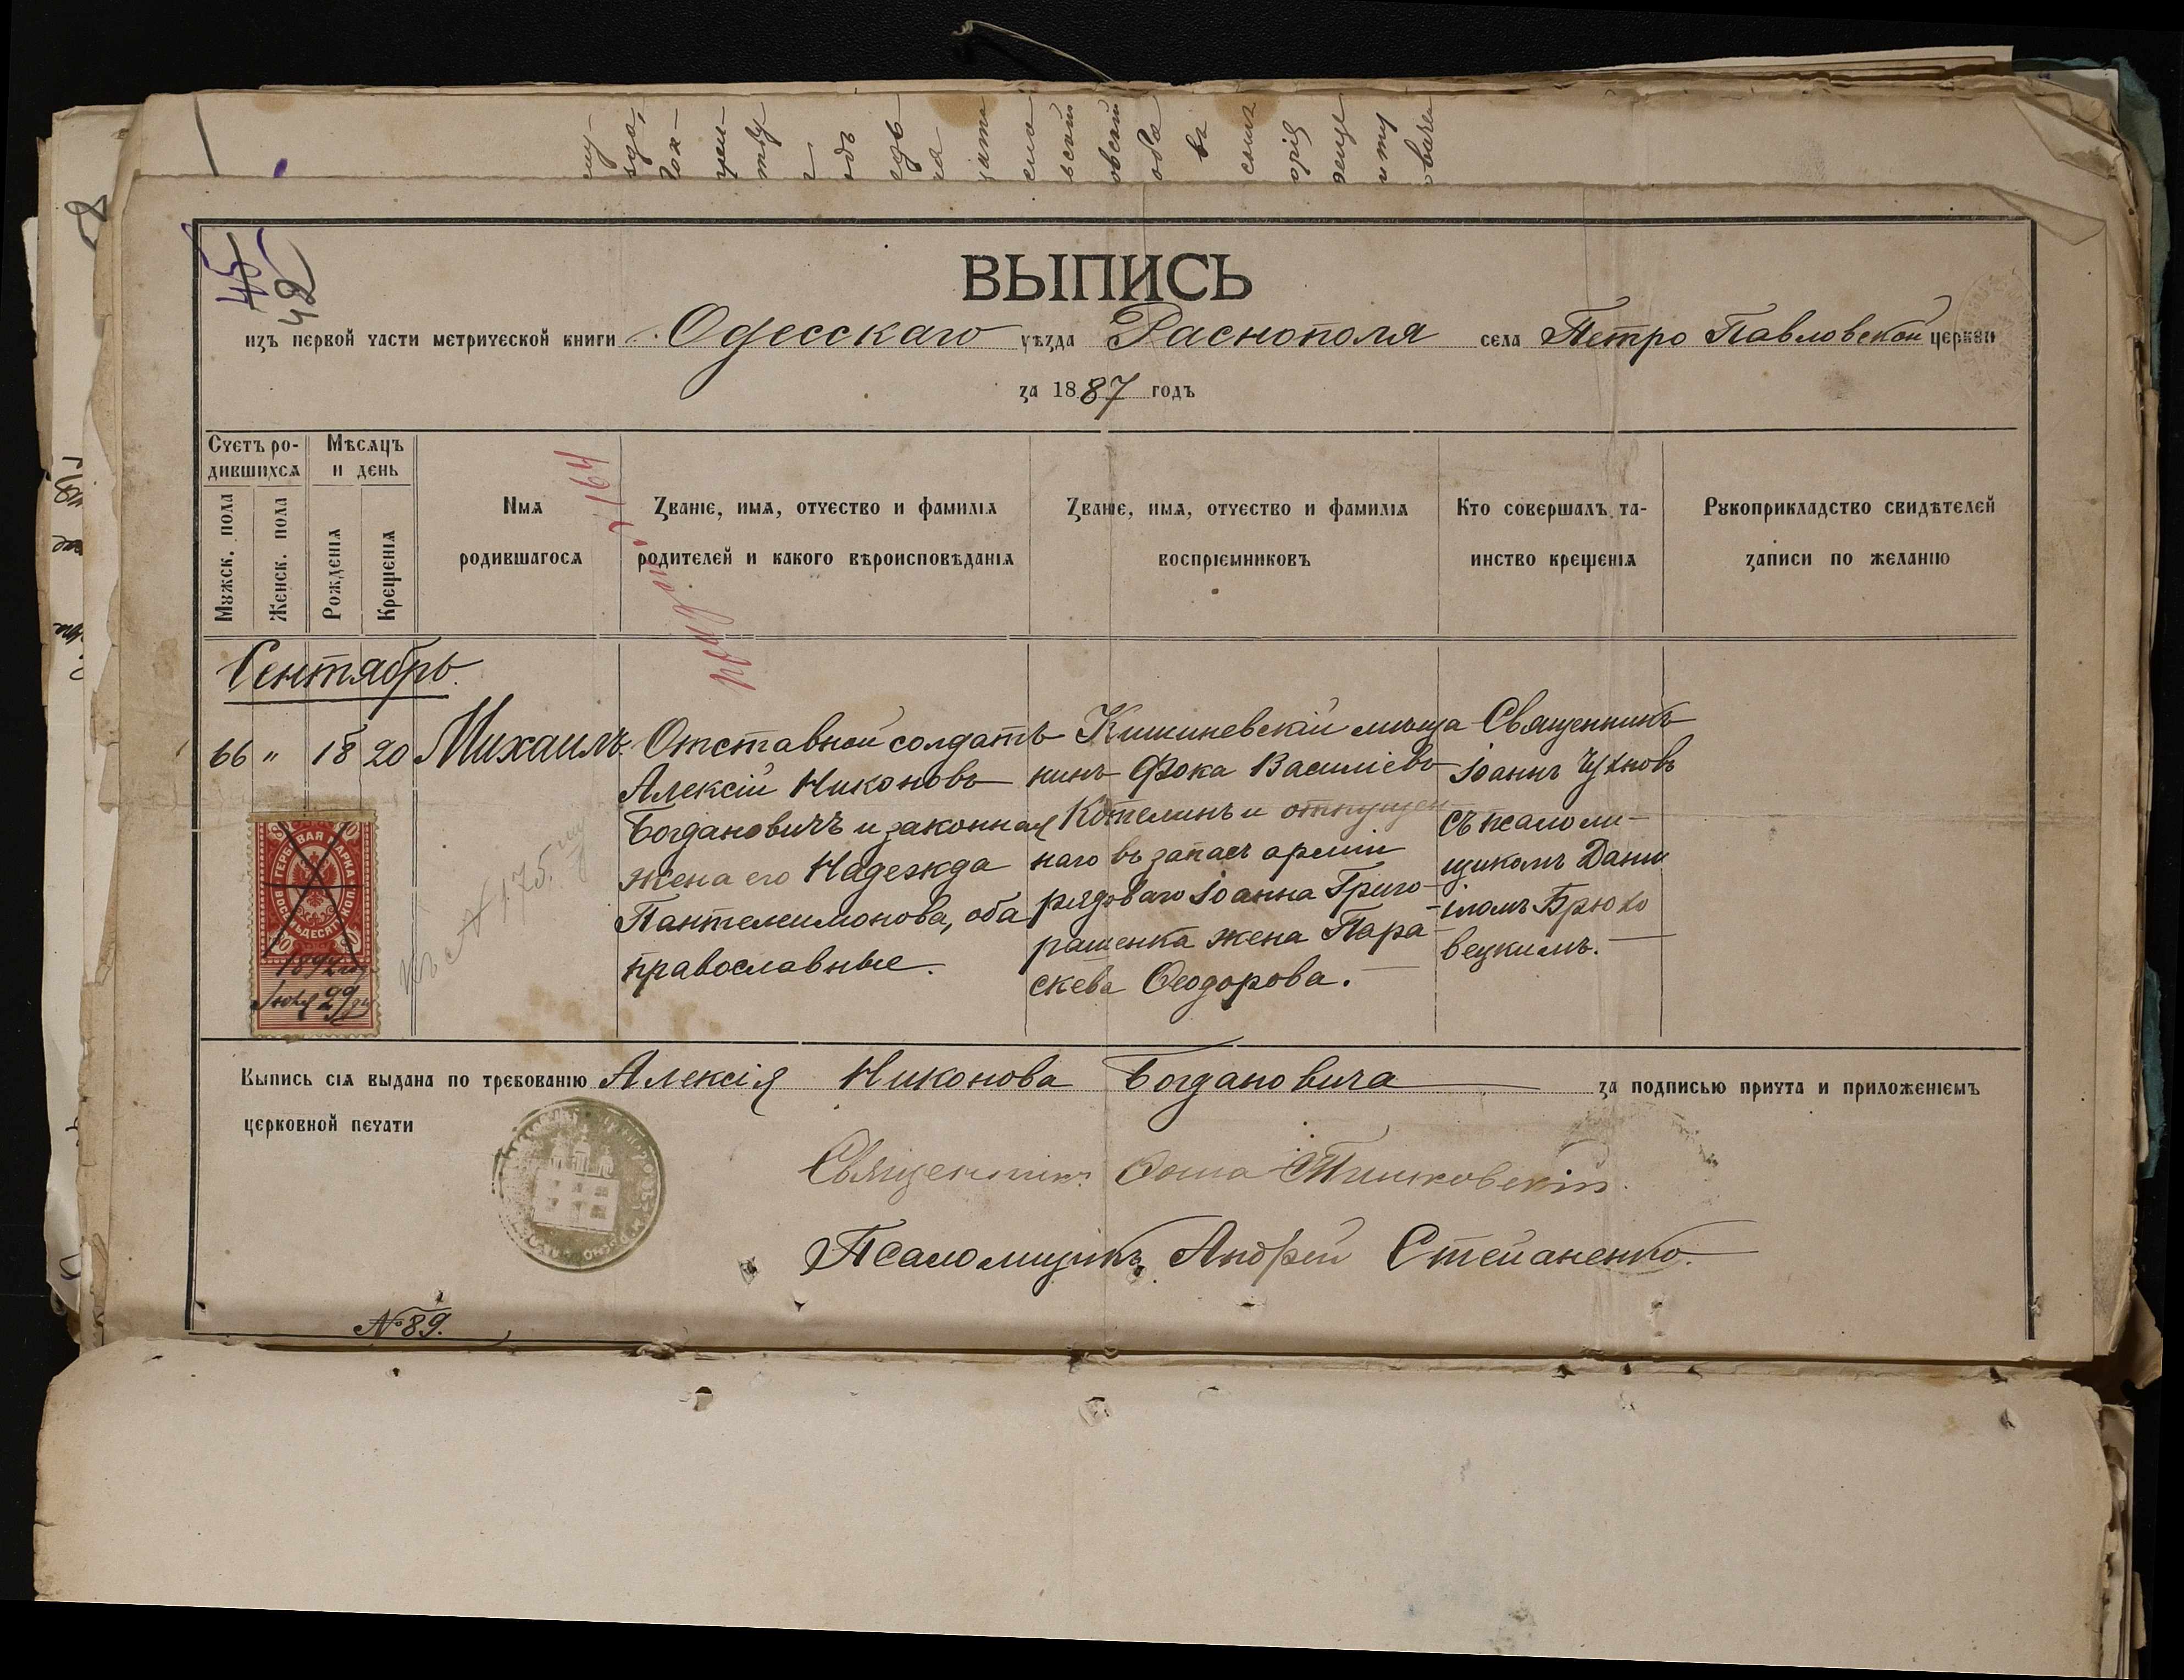 45
42
ВЫПИСЬ
изъ первой части метрической книги Одесскаго уѣзда Раснополя села Петро Павловской церкви
за 1887 годъ
Счетъ ро-
дившихся
Мужск. пола
Женск. пола
Мѣсяцъ
и день
Рожденія
Крещенія
Имя
родившагося
Званіе, имя, отчество и фамилія
родителей и какого вѣроисповѣданія
Званіе, имя, отчество и фамилія
воспріемниковъ
Кто совершалъ та-
инство крещенія
Рукоприкладство свидѣтелей
записи по желанію
Сентябрь.
66 " 18 20 Михаилъ.
Отставной солдатъ
Алексій Никоновъ
Богдановичъ и законная
жена его Надежда
Пантелеимонова, оба
православные.
Кишиневскій мѣща
нинъ Фока Василіевъ
Котелинъ и отпущен
наго въ запасъ арміи
рядоваго Іоанна Григо-
рашенка жена Пара-
скева Ѳеодорова.
Священникъ
Іоаннъ Чухновъ
съ псаломи-
щикомъ Дани
іломъ Брюхо
вецкимъ.
ГЕРБОВАЯ МАРКА
ВОСЕМЬДЕСЯТЪ КОП.
80 80
1892 го
Іюня 29 дня
къ № 175.
Выпись сія выдана по требованію Алексія Никонова Богдановича за подписью причта и приложеніемъ
церковной печати
Священникъ Ѳома
Псаломщикъ Андрей Степаненко.
№ 89.